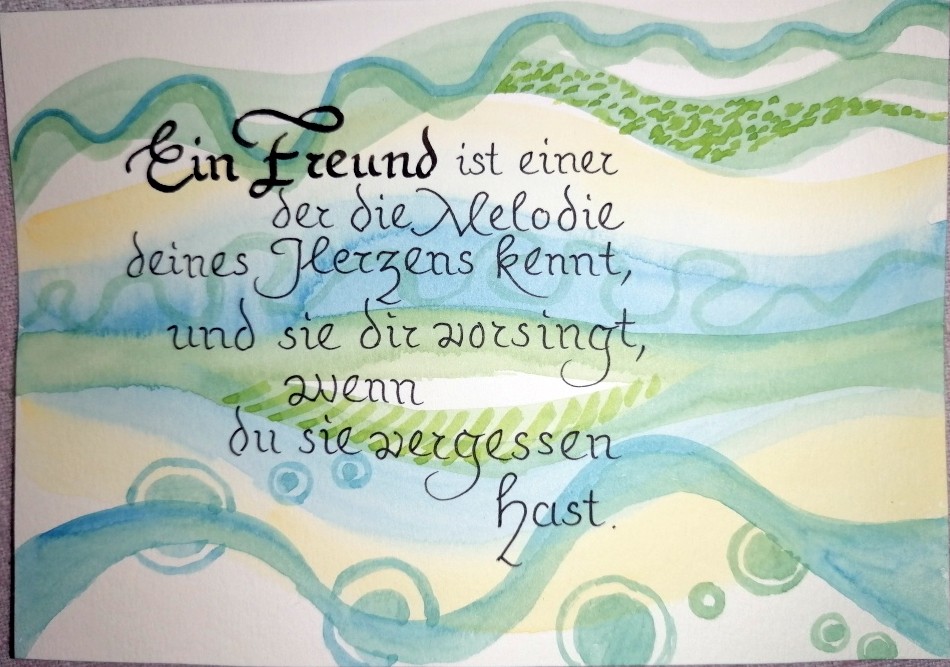 Ein Freund ist einer
der die Melodie
deines Herzens kennt,
und sie dir vorsingt,
wenn
du sie vergessen
hast.